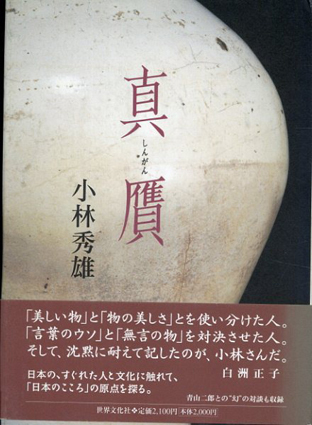 真贋
しんがん
小林秀雄
「美しい物」と「物の美しさ」とを使い分けた人。
「言葉のウソ」と「無言の物」を対決させた人。
そして、沈黙に耐えて記したのが、小林さんだ。
白洲正子
日本の、すぐれた人と文化に触れて、
「日本のこころ」の原点を探る。
青山二郎との“幻”の対談も収録
世界文化社❖定価2,100円 本体2,000円